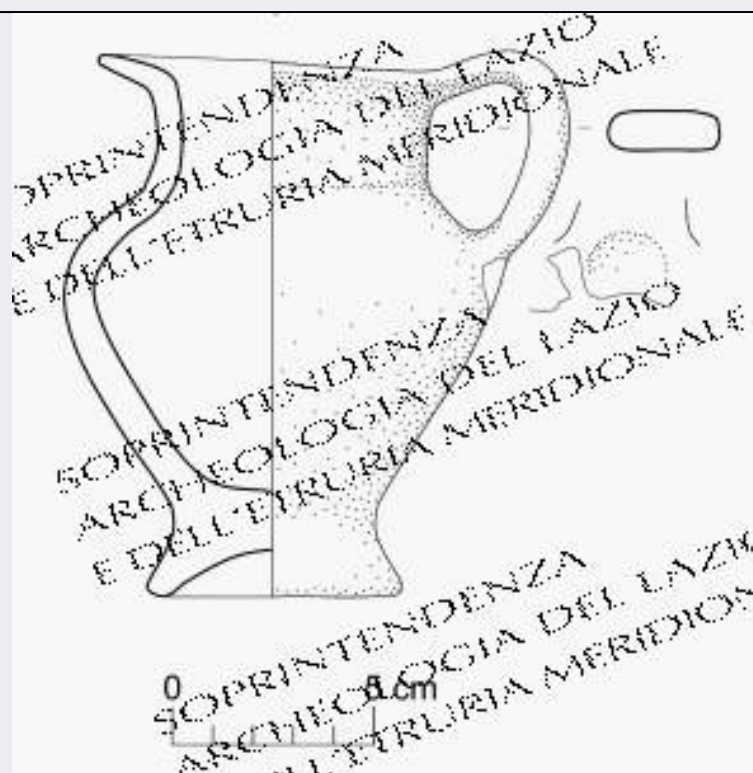 SOPRINTENDENZA
ARCHEOLOGIA DEL LAZIO
E DELL'ETRURIA MERIDIONALE
SOPRINTENDENZA
ARCHEOLOGIA DEL LAZIO
E DELL'ETRURIA MERIDIONALE
SOPRINTENDENZA
ARCHEOLOGIA DEL LAZIO
DELL'ETRURIA MERIDION
0 5 cm